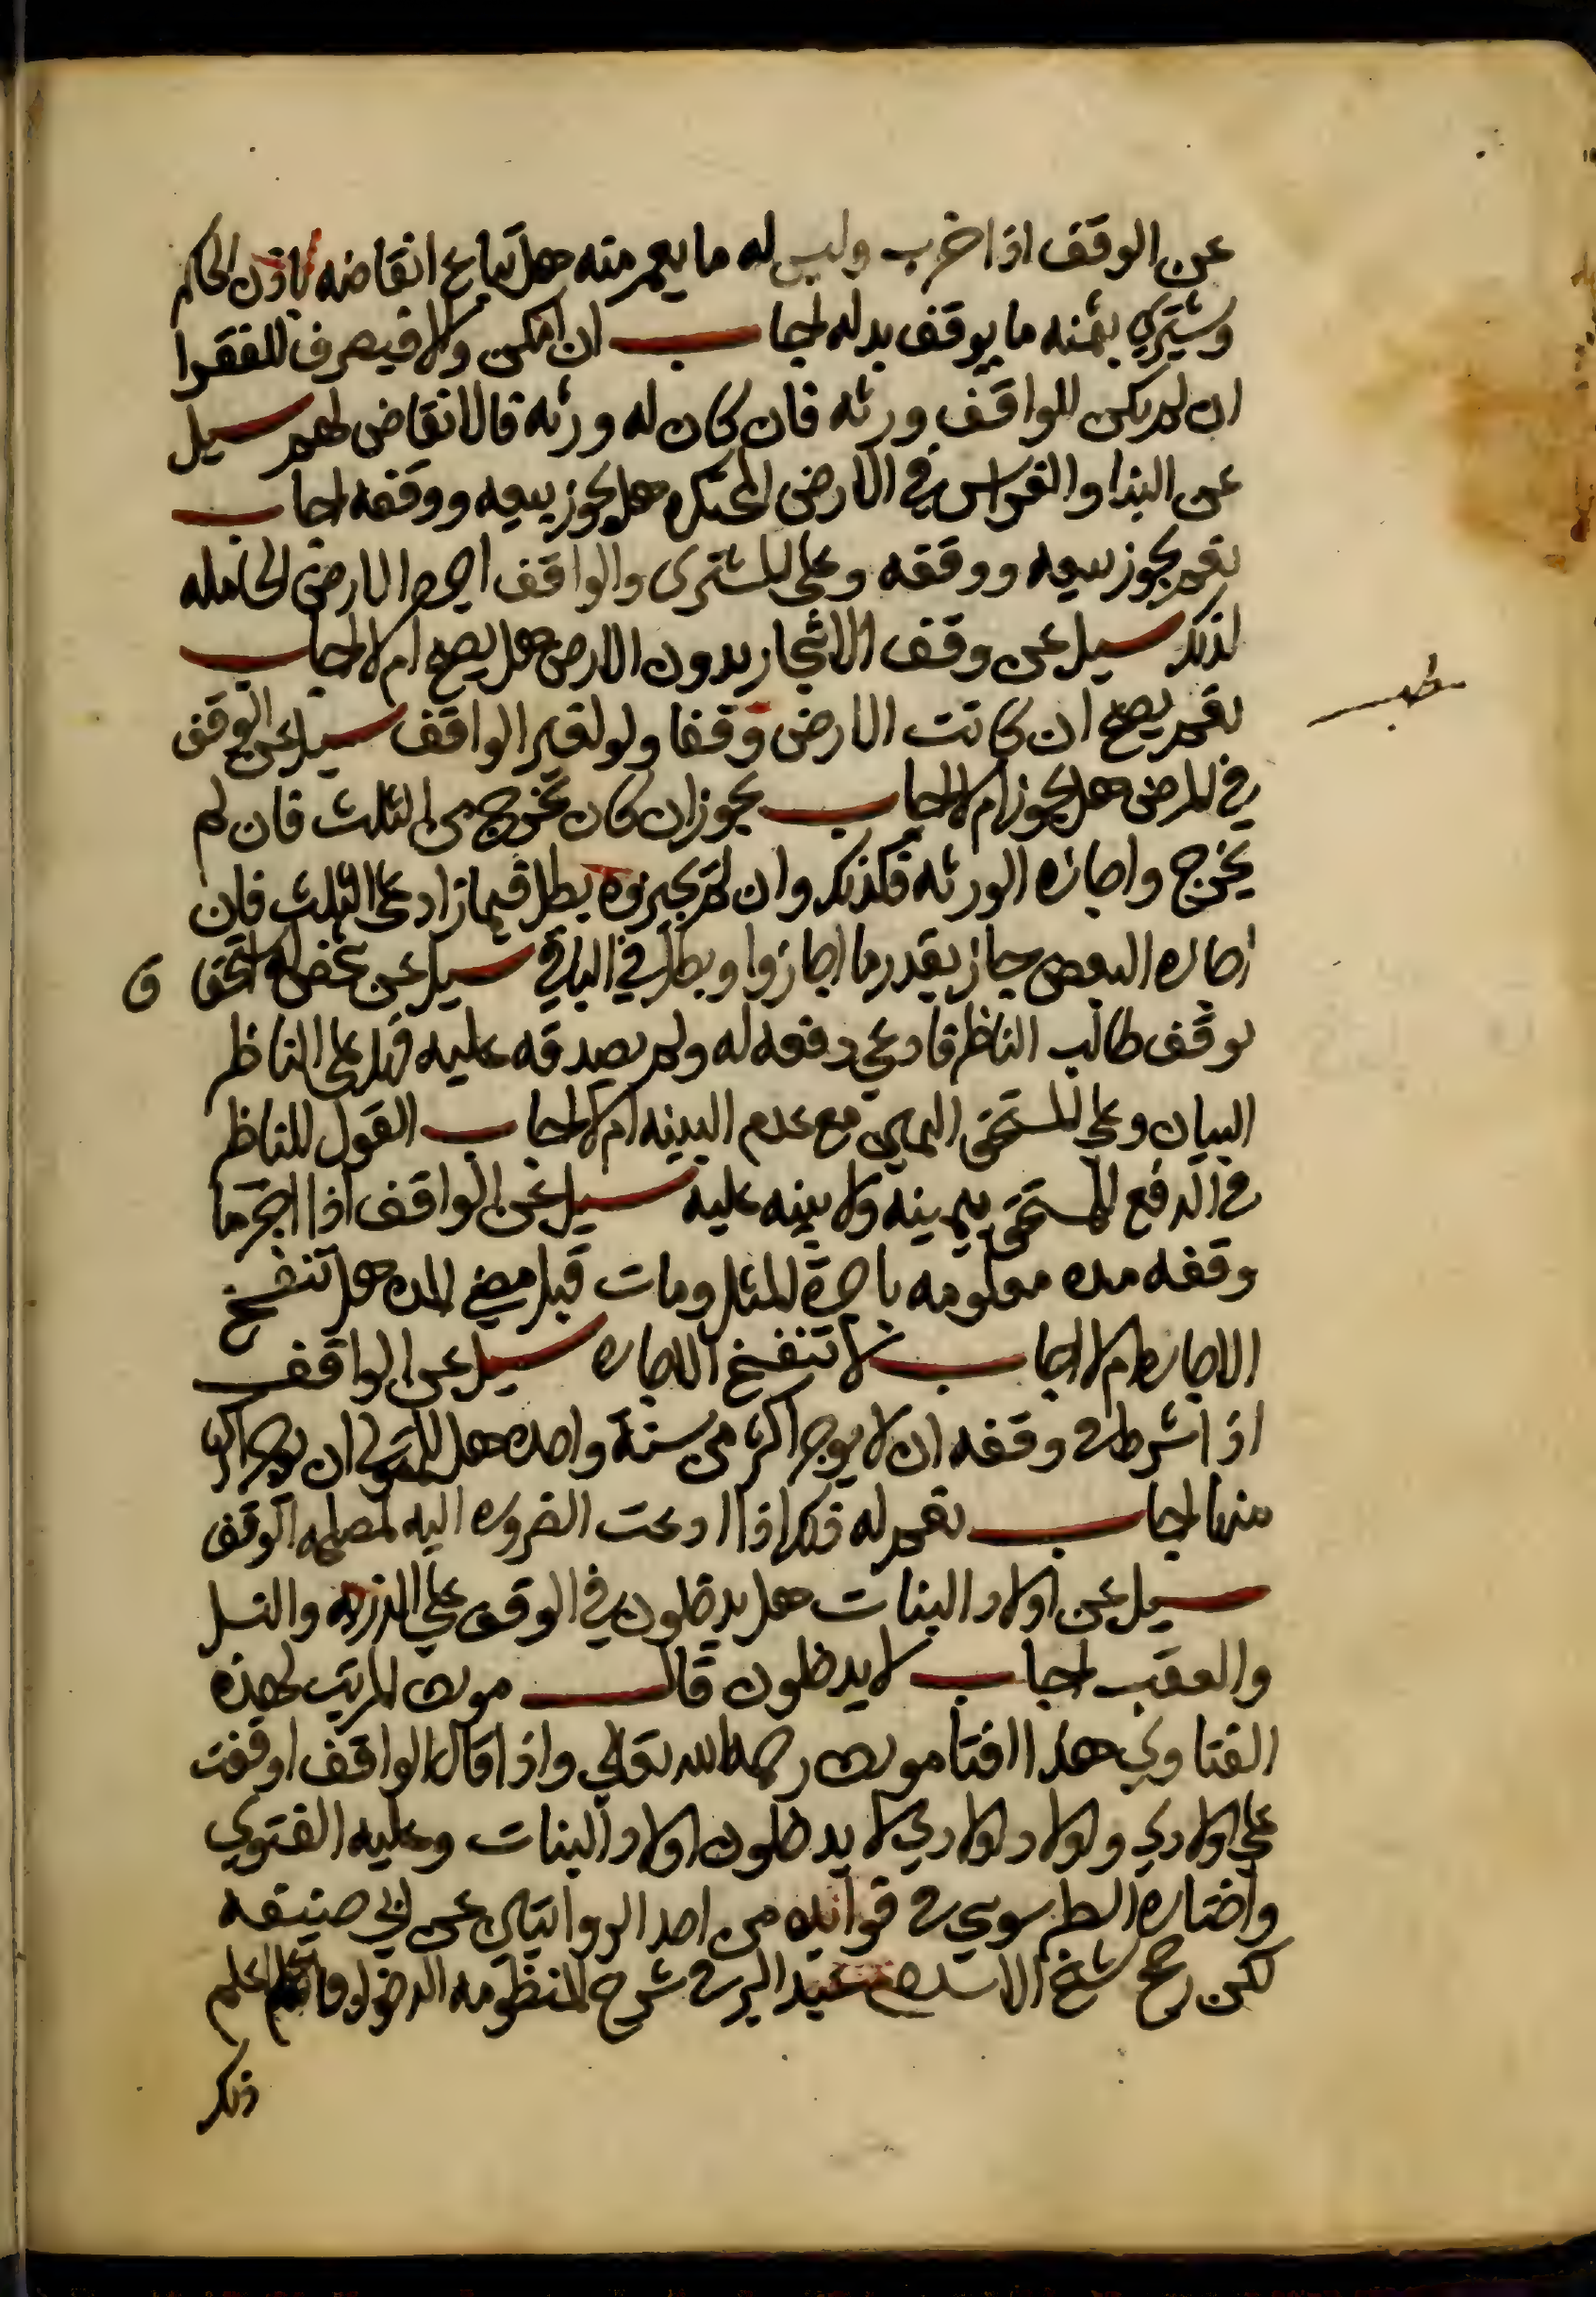 عن الوقف اذا خرب وليس له ما يعمر منه هل تباع انقاضه باذن الحاكم
وشتري بثمنه ما يوقف بدله اجاب ان امكن والا فيصرف للفقرا
ان لم يكن للواقف ورثه فان كان له ورثه فالانقاض لهم سيل
عن البنا والغراس في الارض المحتكره هل يجوز بيعه ووقفه اجاب
نعم يجوز بيعه ووقفه وعلى المشترى والواقف اجره الارض الحامله
لذلك سيل عن وقف الاشجار بدون الارض هل يصح ام لا اجاب
نعم يصح ان كانت الارض وقفا ولو لغير الواقف سيل عن الوقف
في المرض هل يجوز ام لا اجاب يجوز ان كان يخرج من الثلث فان لم
يخرج واجازه الورثه فكذلك وان لم يجيزوه بطل فيما زاد على الثلث فان
اجازه البعض جاز بقدر ما اجازوا وبطل في الباقي سيل عن شخص استحق
بوقف طالب الناظر فادعي دفعه له ولم يصدقه عليه فهل على الناظر
البيان وعلى المستحق اليمين مع عدم البينه ام لا اجاب القول للناظر
في الدفع للمستحق بيمينه ولا بينه عليه سيل عن الواقف اذا اجر ما
وقفه مده معلومه باجرة المثل ومات قبل مضي المده هل تنفسخ
الاجاره ام لا اجاب لا تنفسخ الاجاره سيل عن الواقف
اذا شرط في وقفه ان لا يوجر اكثر من سنة واحده هل للمتولي ان يوجر اكثر
منها اجاب نعم له ذلك اذا ادعت الضروره اليه لمصلحه الوقف
سيل عن اولاد البنات هل يدخلون في الوقف علي الذريه والنسل
والعقب اجاب لا يدخلون قال مولف المرتب لهذه
الفتاوي هذا افتا مولف رحمه الله تعالي واذا قال الواقف اوقفت
علي اولادي واولاد اولادي لا يدخلون اولاد البنات وعليه الفتوي
واختاره الطرسوسي في فوائده من احد الروايتين عن ابي حنيفه
لكن رجح شيخ الاسلام عبد البر في شرح المنظومه الدخول فاعلم
ذلك